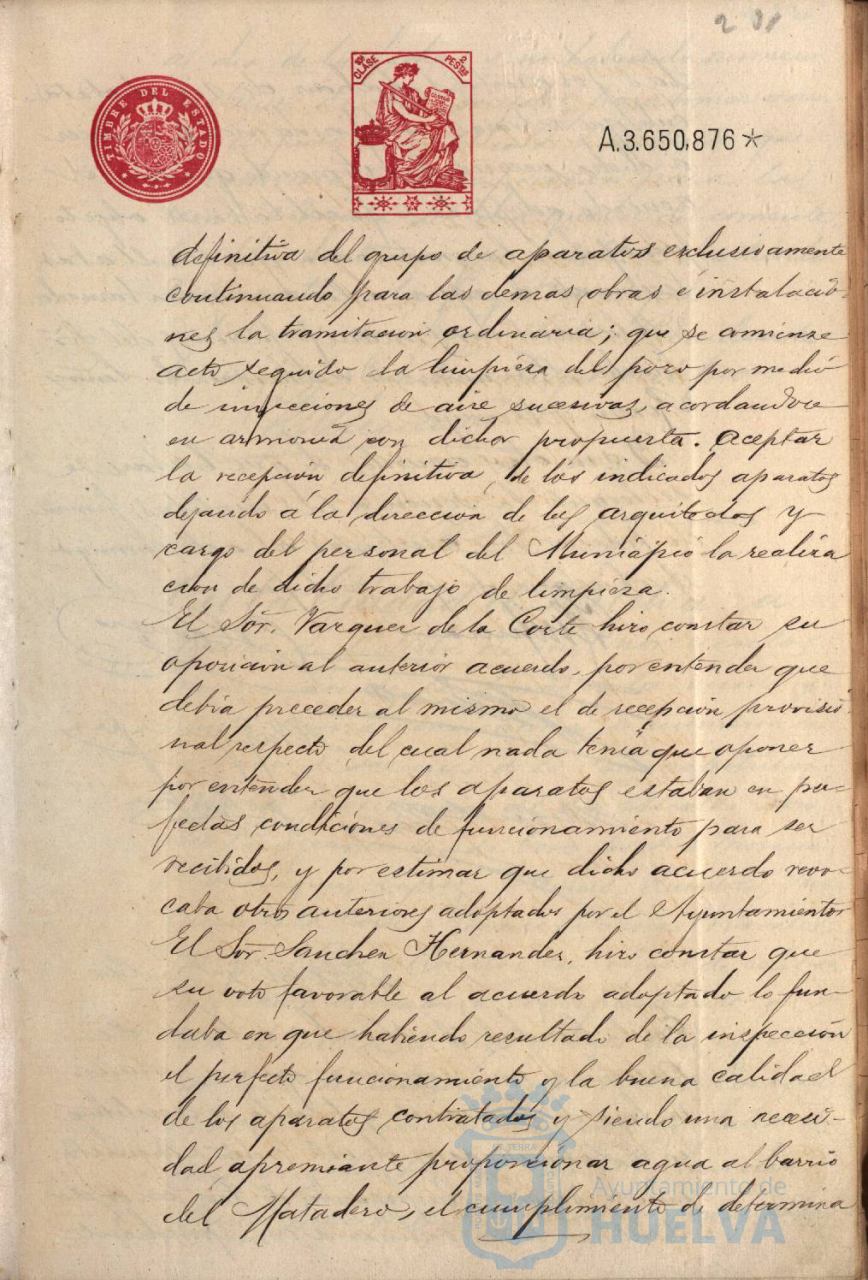 231
TIMBRE DEL ESTADO
10ª CLASE
2 PESTAS
A.3.650,876*
definitiva del grupo de aparatos exclusivamente
continuando para las demas obras é instalacio-
nes la tramitacion ordinaria; que se comience
acto seguido la limpieza del pozo por medio
de inyecciones de aire sucesivas, acordandose
en armonia con dicha propuesta. aceptar
la recepción definitiva, de los indicados aparatos
dejando á la direccion de los arquitectos y
cargo del personal del Municipio la realiza
cion de dicho trabajo de limpieza.
El Sor. Vazquez de la Corte hizo constar su
oposicion al anterior acuerdo, por entender que
debia preceder al mismo el de recepción provisio-
nal respecto del cual nada tenia que oponer
por entender que los aparatos estaban en per-
fectas condiciones de funcionamiento para ser
recibidos, y por estimar que dicho acuerdo revo-
caba otros anteriores adoptados por el Ayuntamiento
El Sor. Sanchez Hernandez, hizo constar que
su voto favorable al acuerdo adoptado lo fun-
daba en que habiendo resultado de la inspeccion
el perfecto funcionamiento y la buena calidad
de los aparatos contratados y siendo una necesi-
dad apremiante proporcionar agua al barrio
del Matadero, el cumplimiento de determina
Ayuntamiento de
HUELVA